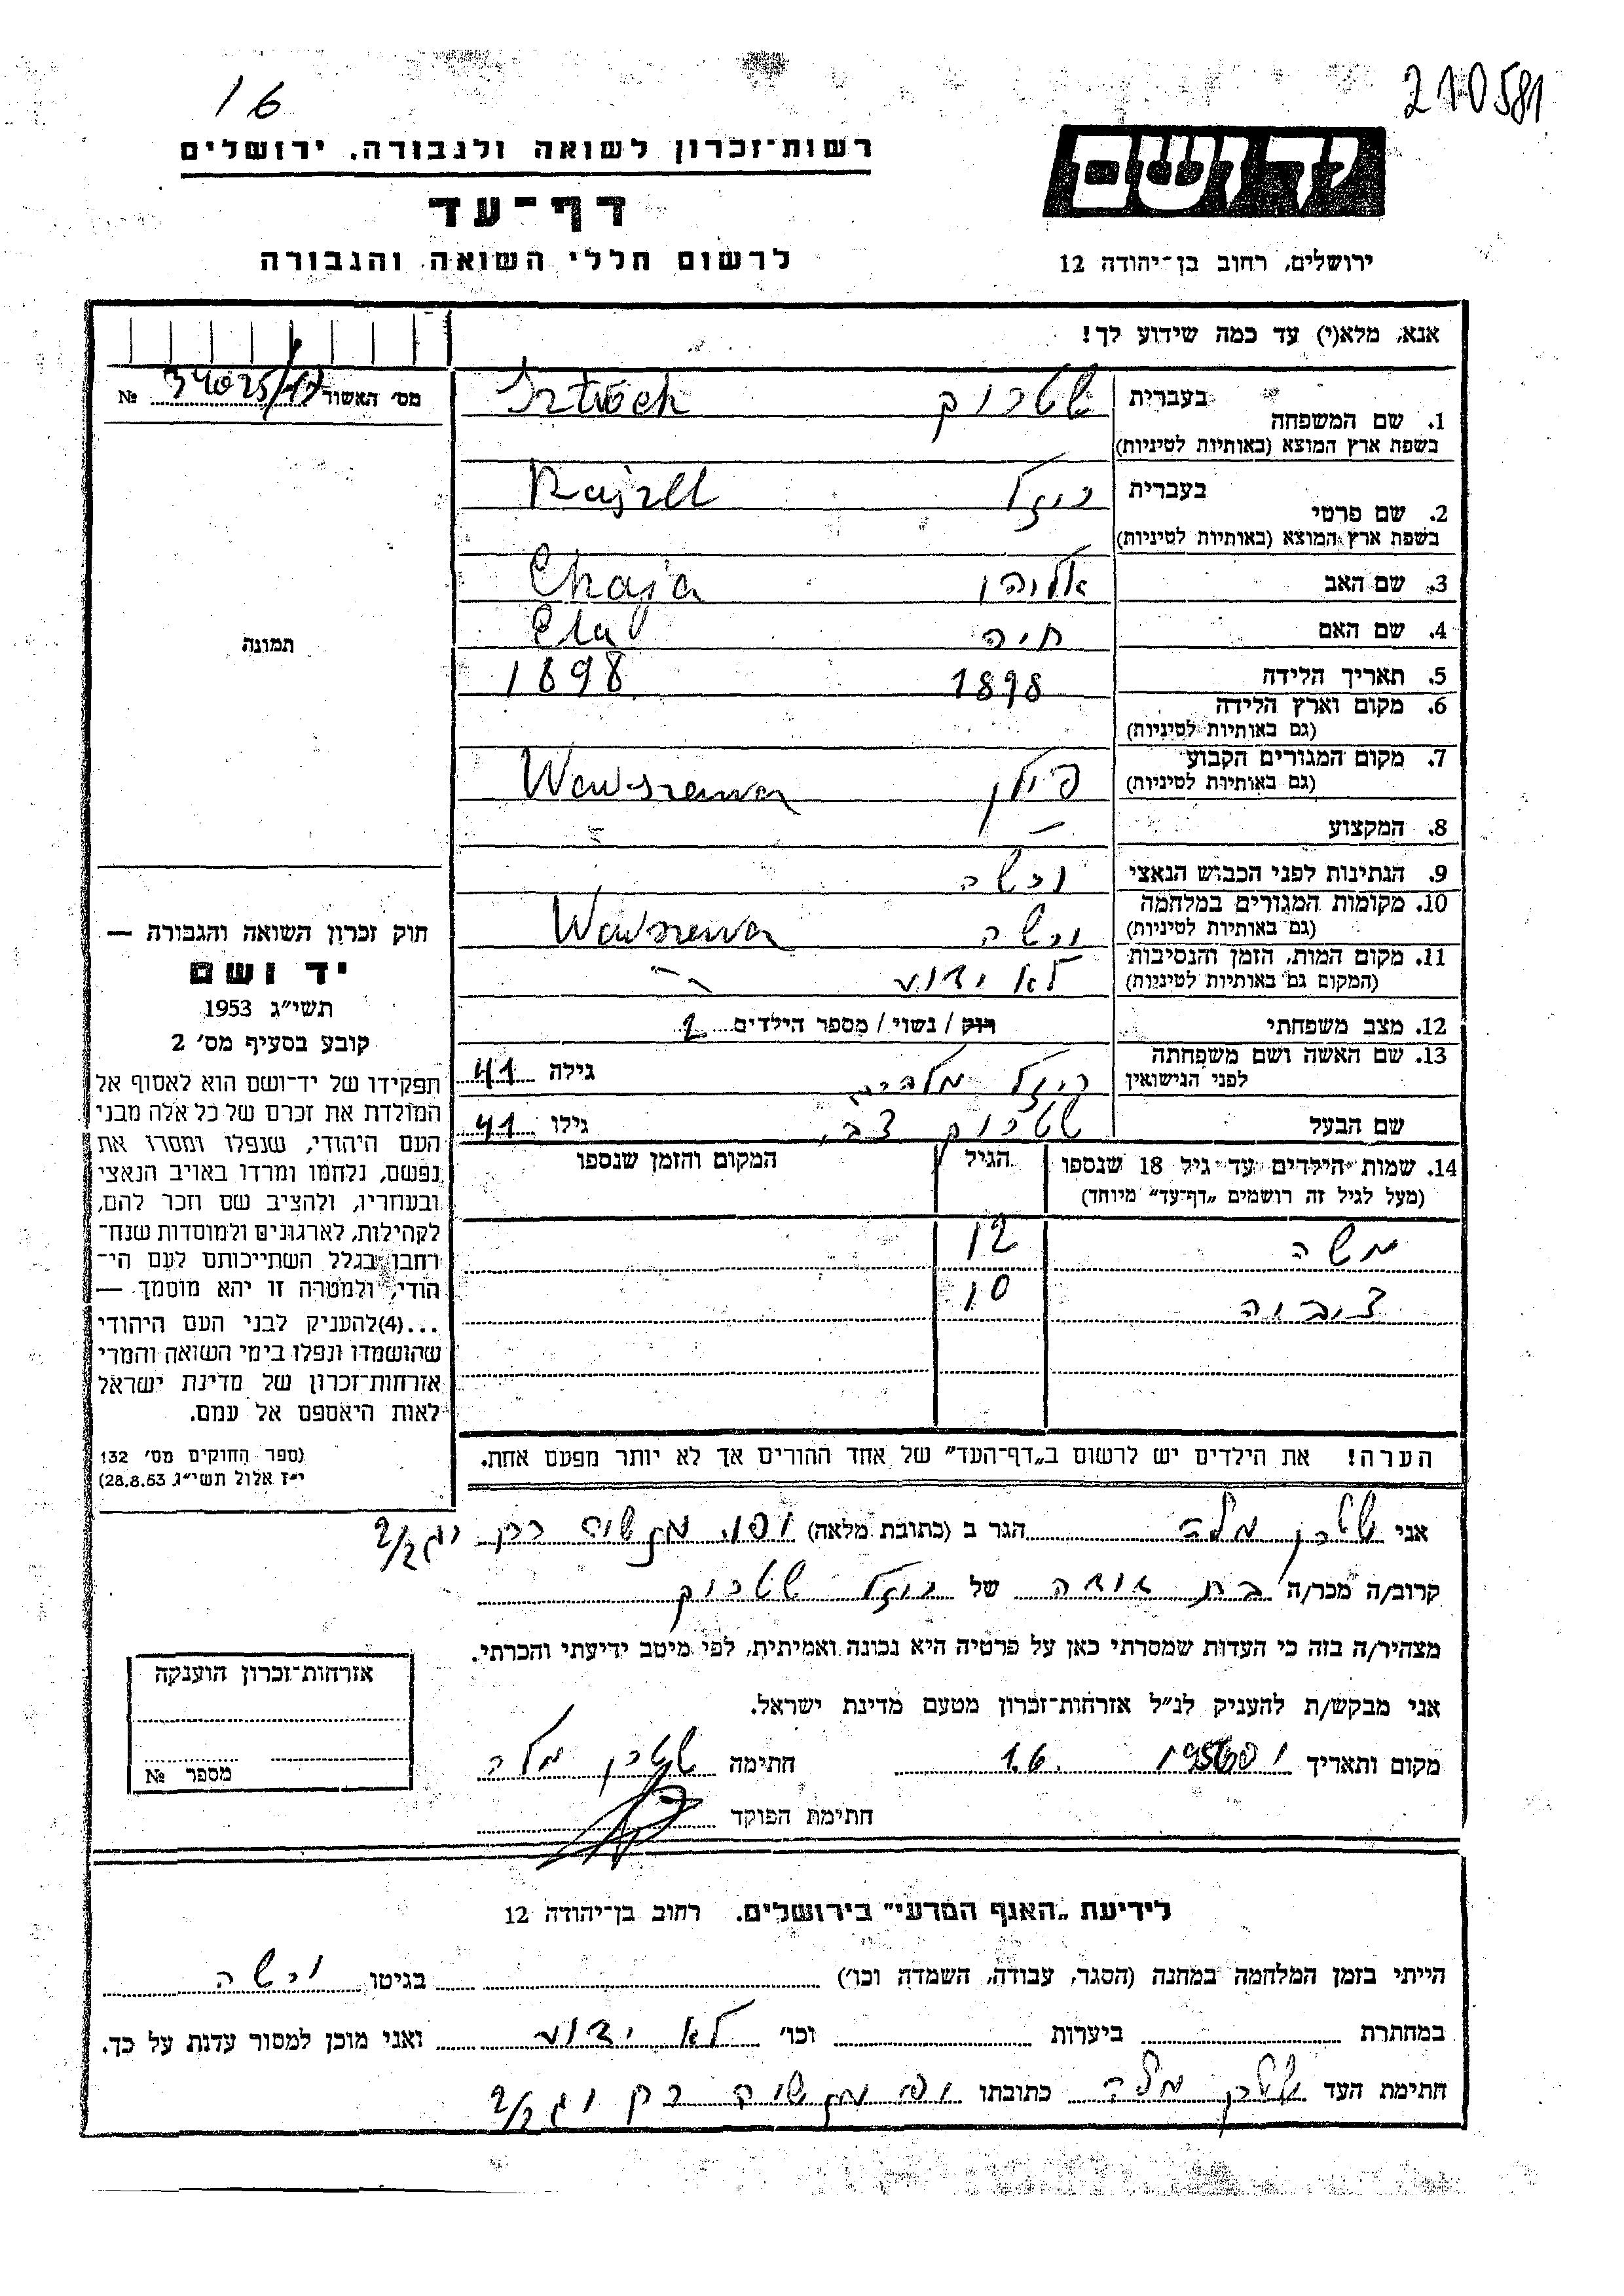 16
210581
רשות־זכרון לשואה ולגבורה. ירושלים
ידושם
דף־עד
לרשום חללי השואה והגבורה
ירושלים, רחוב בן־יהודה 12
אנא, מלא(י) עד כמה שידוע לך!
מס׳ האשור №
1. שם המשפחה
בעברית שטרוק
Sztroek
בשפת ארץ המוצא (באותיות לטיניות)
2. שם פרטי
בעברית רוזל
Rajzel
בשפת ארץ המוצא (באותיות לטיניות)
3. שם האב אליהו Chaja
4. שם האם חיה Eta
5. תאריך הלידה 1898 1898
6. מקום וארץ הלידה
(גם באותיות לטיניות)
7. מקום המגורים הקבוע
(גם באותיות לטיניות) פולין Wawszewa
8. המקצוע –
9. הנתינות לפני הכבוש הנאצי ורשה
10. מקומות המגורים במלחמה
(גם באותיות לטיניות) ורשה Wawszewa
11. מקום המות, הזמן והנסיבות
(המקום גם באותיות לטיניות) לא ידוע
12. מצב משפחתי רוק / נשוי / מספר הילדים 2
13. שם האשה ושם משפחתה
לפני הנישואין רוזל גילה 41
שם הבעל שטרוק צבי גילו 41
14. שמות הילדים עד גיל 18 שנספו הגיל המקום והזמן שנספו
(מעל לגיל זה רושמים „דף־עד״ מיוחד)
משה 12
10
תמונה
חוק זכרון השואה והגבורה —
יד ושם
תשי״ג 1953
קובע בסעיף מס׳ 2
תפקידו של יד־ושם הוא לאסוף אל
המולדת את זכרם של כל אלה מבני
העם היהודי, שנפלו ומסרו את
נפשם, נלחמו ומרדו באויב הנאצי
ובעוזריו, ולהציב שם וזכר להם,
לקהילות, לארגונים ולמוסדות שנח־
רחבו בגלל השתייכותם לעם הי־
הודי, ולמטרה זו יהא מוסמך —
...(4)להעניק לבני העם היהודי
שהושמדו ונפלו בימי השואה והמרי
אזרחות־זכרון של מדינת ישראל
לאות היאספם אל עמם.
(ספר החוקים מס׳ 132
י״ז אלול תשי״ג 28.8.53)
הערה! את הילדים יש לרשום ב„דף־העד״ של אחד ההורים אך לא יותר מפעם אחת.
אני שטרן מלכה הגר ב (כתובת מלאה)
קרוב/ה מכר/ה בת דודה של רוזל שטרוק
מצהיר/ה בזה כי העדות שמסרתי כאן על פרטיה היא נכונה ואמיתית, לפי מיטב ידיעתי והכרתי.
אני מבקש/ת להעניק לנ״ל אזרחות־זכרון מטעם מדינת ישראל.
מקום ותאריך 1.6. חתימה שטרן מלכה
חתימת הפוקד
אזרחות־זכרון הוענקה
מספר №
לידיעת „האגף המדעי״ בירושלים. רחוב בן־יהודה 12
הייתי בזמן המלחמה במחנה (הסגר, עבודה, השמדה וכו׳) בגיטו ורשה
במחתרת ביערות וכו׳ לא ידוע ואני מוכן למסור עדות על כך.
חתימת העד שטרן מלכה כתובתו